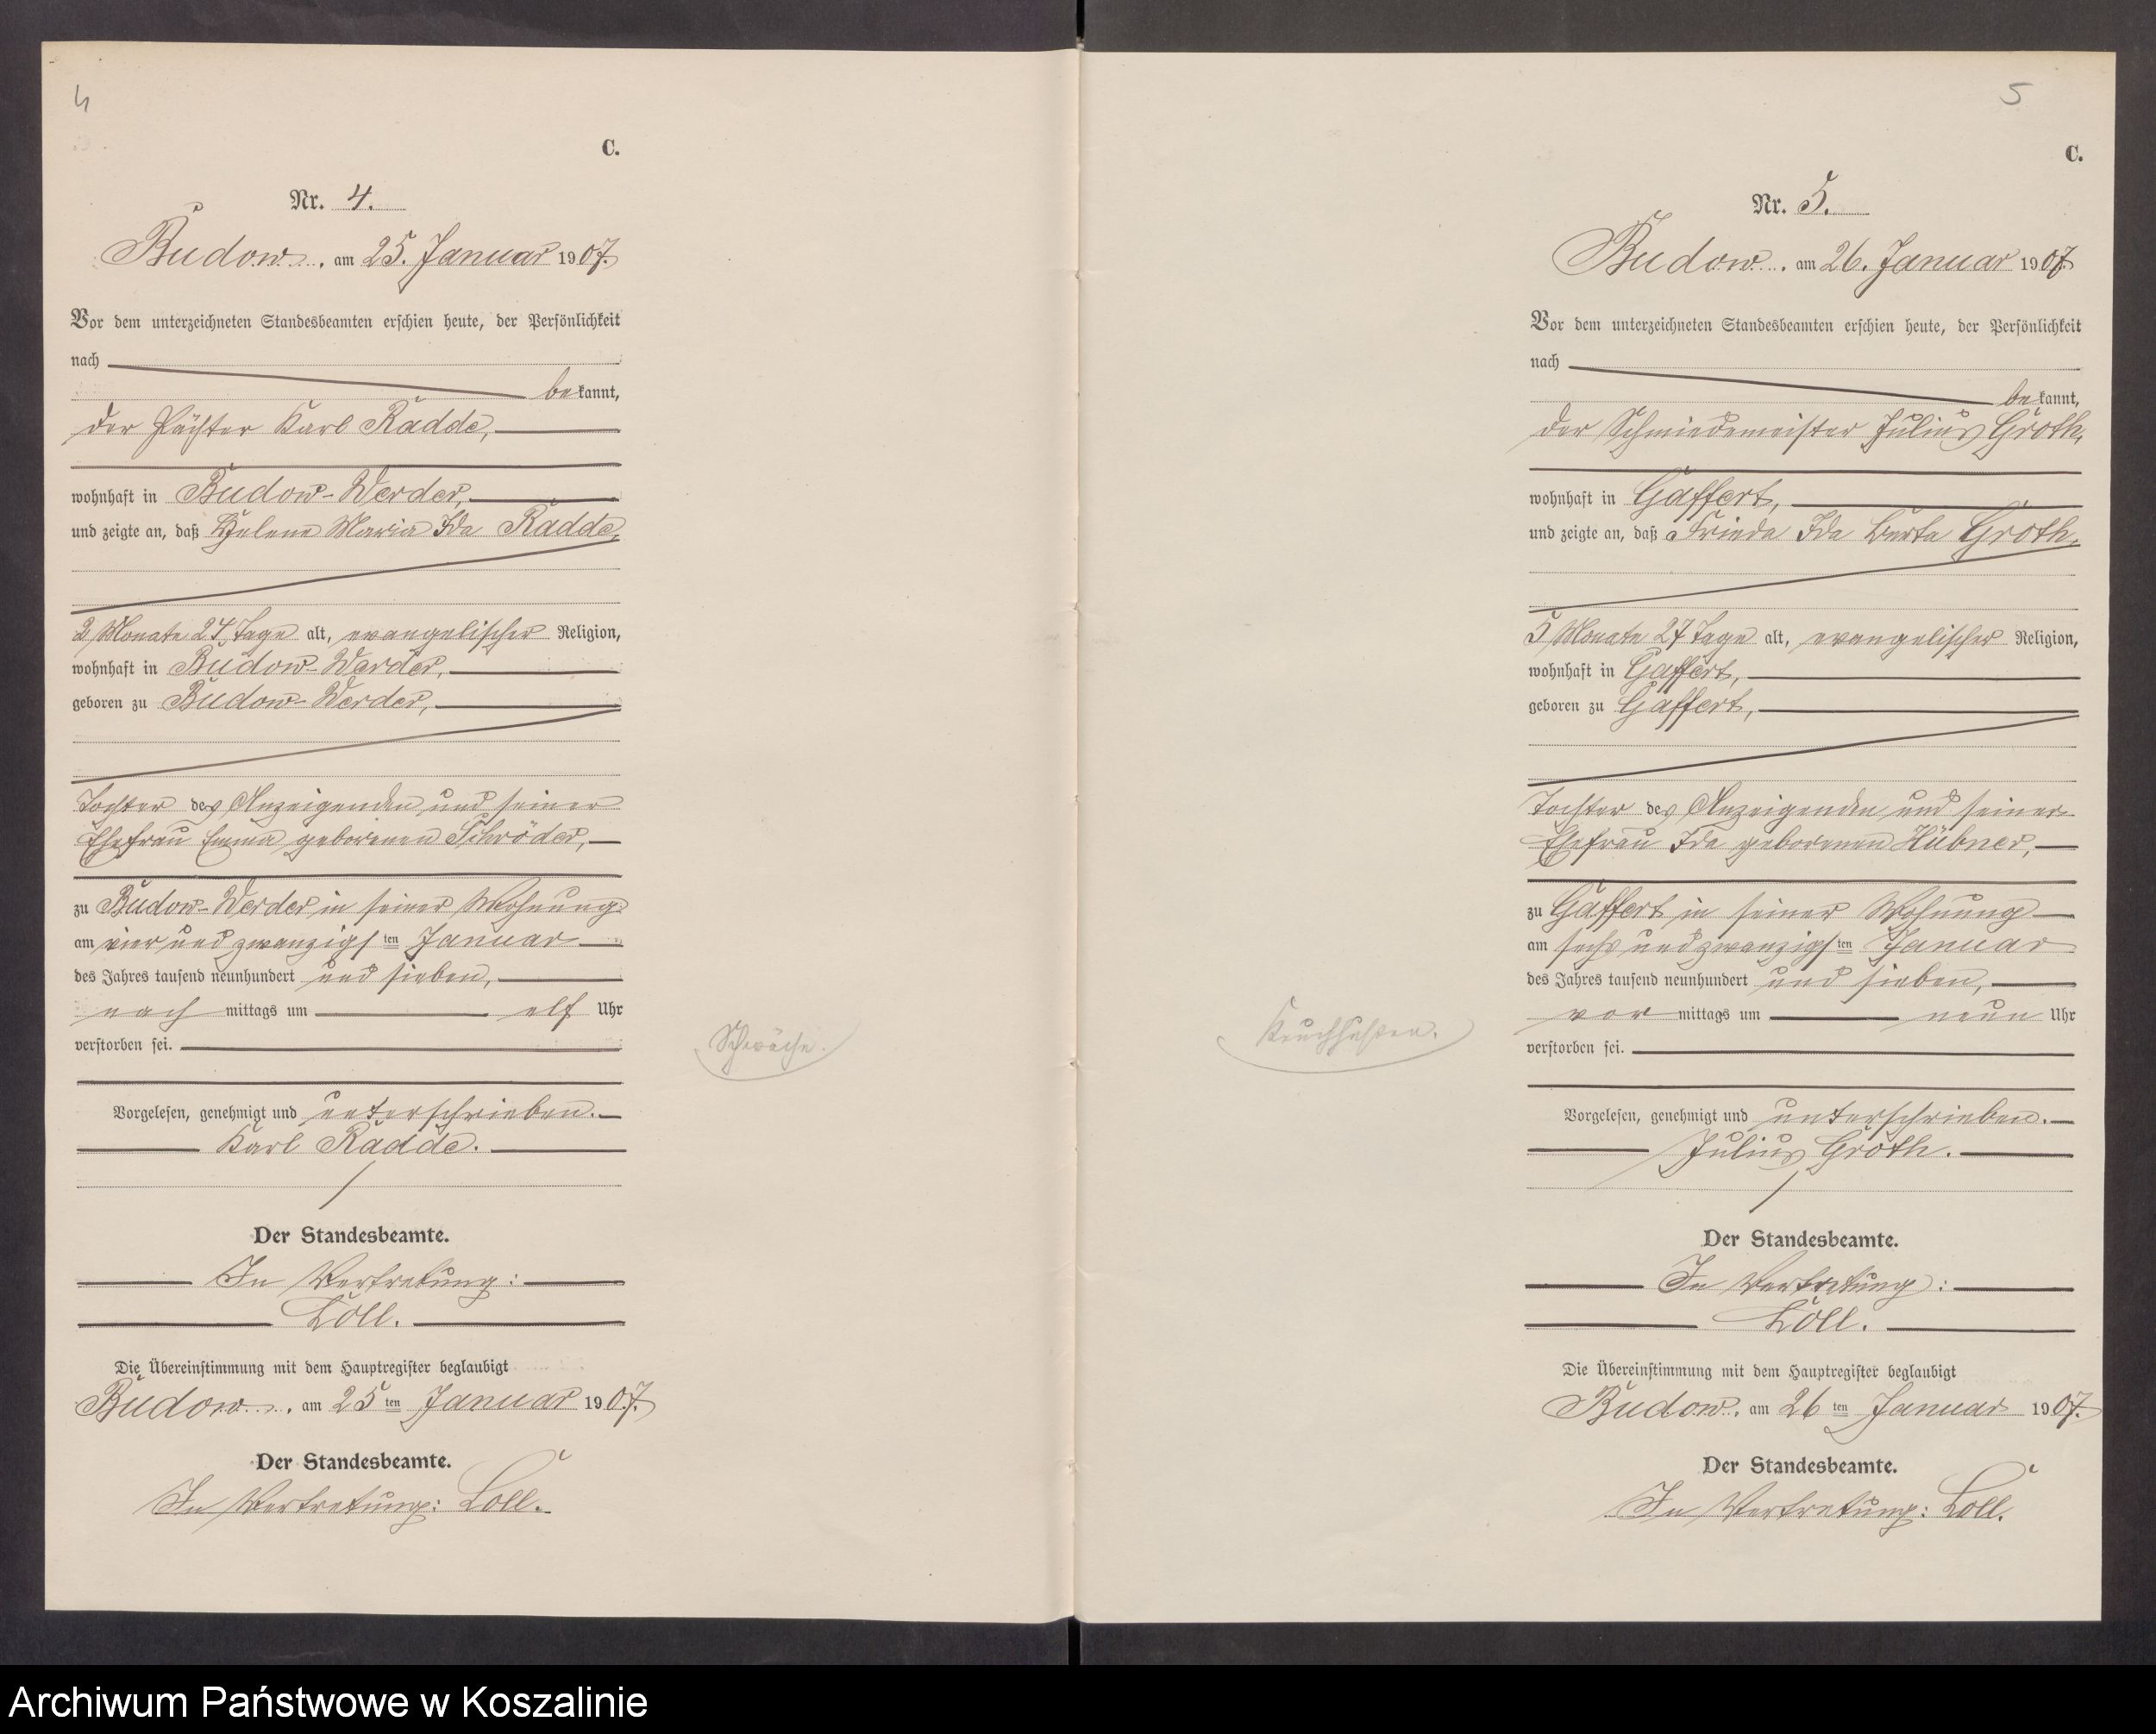 4
C.
Nr. 4.
Budow, am 25. Januar 1907.
Vor dem unterzeichneten Standesbeamten erschien heute, der Persönlichkeit
nach
bekannt,
der Pächter Karl Radde,
wohnhaft in Budow-Werder,
und zeigte an, daß Helene Maria Ida Radde,
2 Monate 24 Tage alt, evangelischer Religion,
wohnhaft in Budow-Werder,
geboren zu Budow-Werder,
Tochter des Anzeigenden und seiner
Ehefrau Emma geborenen Schröder,
zu Budow-Werder in seiner Wohnung
am vier und zwanzigsten Januar
des Jahres tausend neunhundert und sieben,
nachmittags um elf Uhr
verstorben sei.
Schwäche.
Vorgelesen, genehmigt und unterschrieben.
Karl Radde.
Der Standesbeamte.
In Vertretung:
Loll.
Die Übereinstimmung mit dem Hauptregister beglaubigt
Budow, am 25ten Januar 1907.
Der Standesbeamte.
In Vertretung: Loll.
5
C.
Nr. 5.
Budow, am 26. Januar 1907.
Vor dem unterzeichneten Standesbeamten erschien heute, der Persönlichkeit
nach
bekannt,
der Schmiedemeister Julius Groth,
wohnhaft in Gaffert,
und zeigte an, daß Frieda Ida Berta Groth,
5 Monate 27 Tage alt, evangelischer Religion,
wohnhaft in Gaffert,
geboren zu Gaffert,
Tochter des Anzeigenden und seiner
Ehefrau Ida geborenen Hübner,
zu Gaffert in seiner Wohnung
am sechs und zwanzigsten Januar
des Jahres tausend neunhundert und sieben,
vormittags um neun Uhr
verstorben sei.
Keuchhusten.
Vorgelesen, genehmigt und unterschrieben.
Julius Groth.
Der Standesbeamte.
In Vertretung:
Loll.
Die Übereinstimmung mit dem Hauptregister beglaubigt
Budow, am 26ten Januar 1907.
Der Standesbeamte.
In Vertretung: Loll.
Archiwum Państwowe w Koszalinie